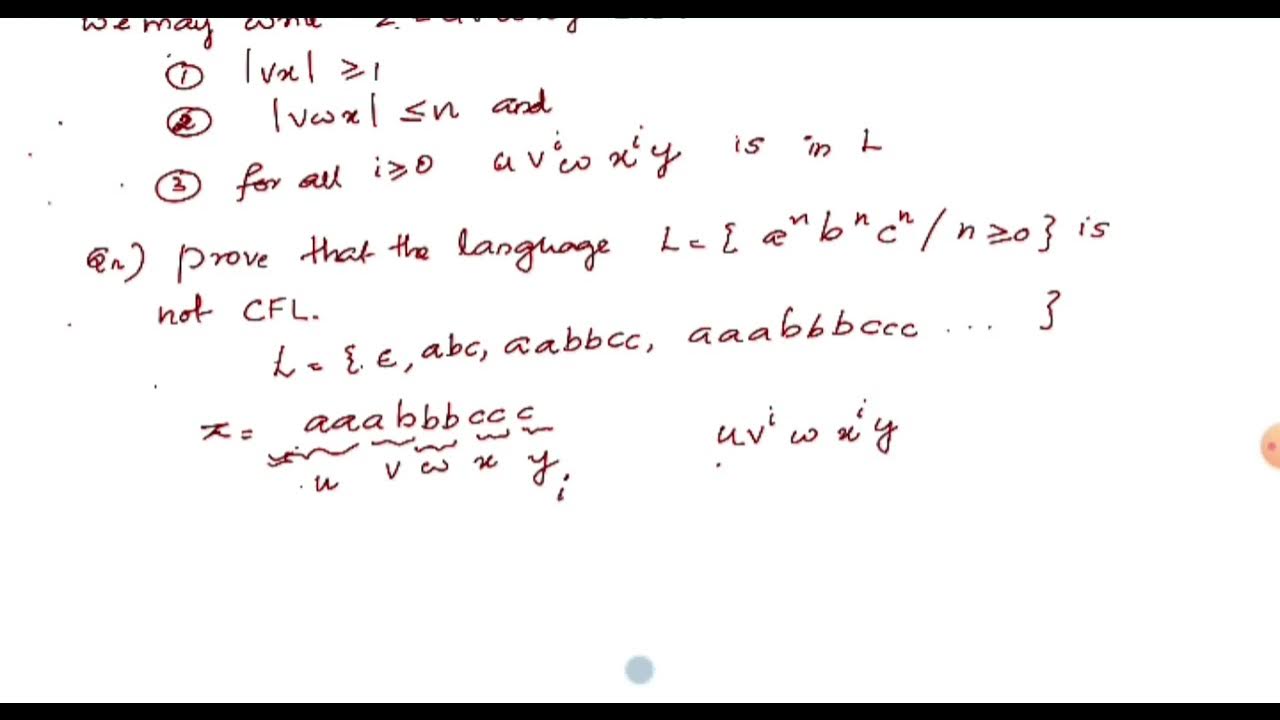 we may write
① |vx| ≥ 1
② |vwx| ≤ n and
③ for all i ≥ 0 u vⁱ w xⁱ y is in L
Qn) prove that the language L = { aⁿ bⁿ cⁿ / n ≥ 0 } is
not CFL.
L = { ε, abc, aabbcc, aaabbbccc ... }
z = aaabbbccc u vⁱ w xⁱ y
u v w x y i